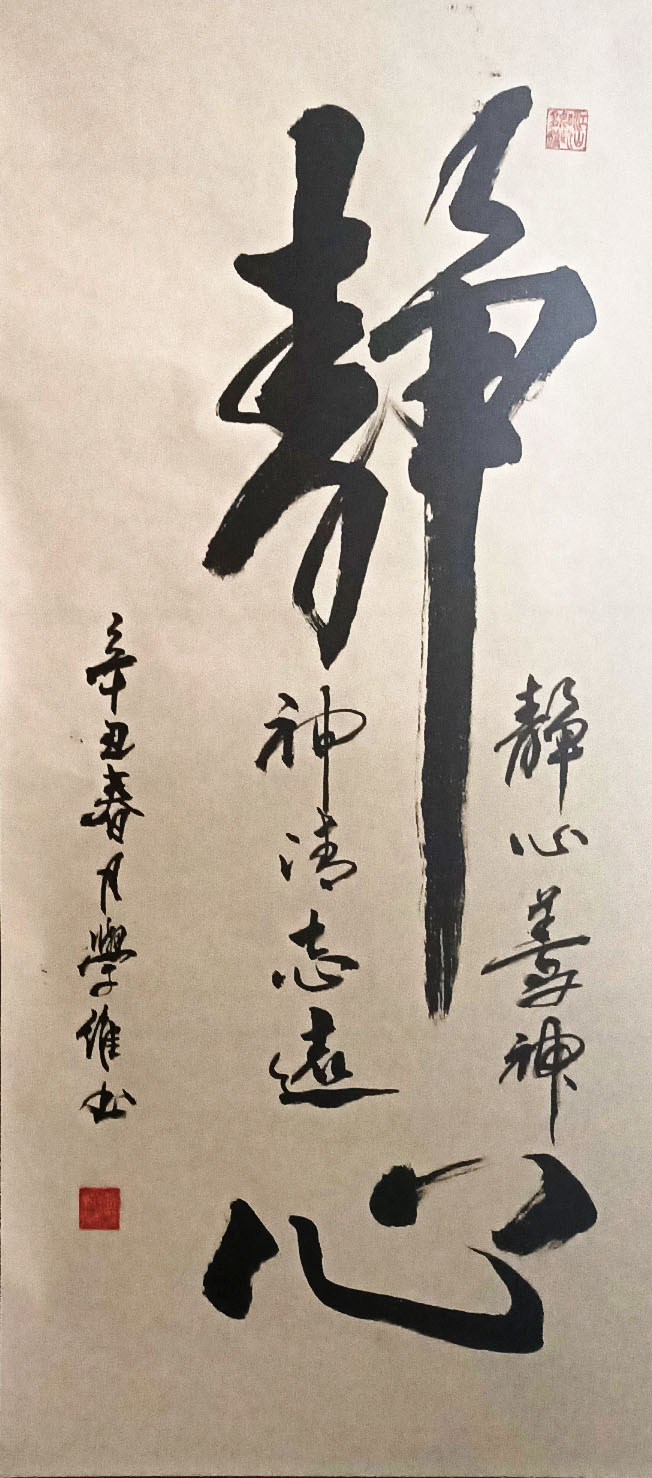 靜心
靜心養神
神清志遠
辛丑春月學維书